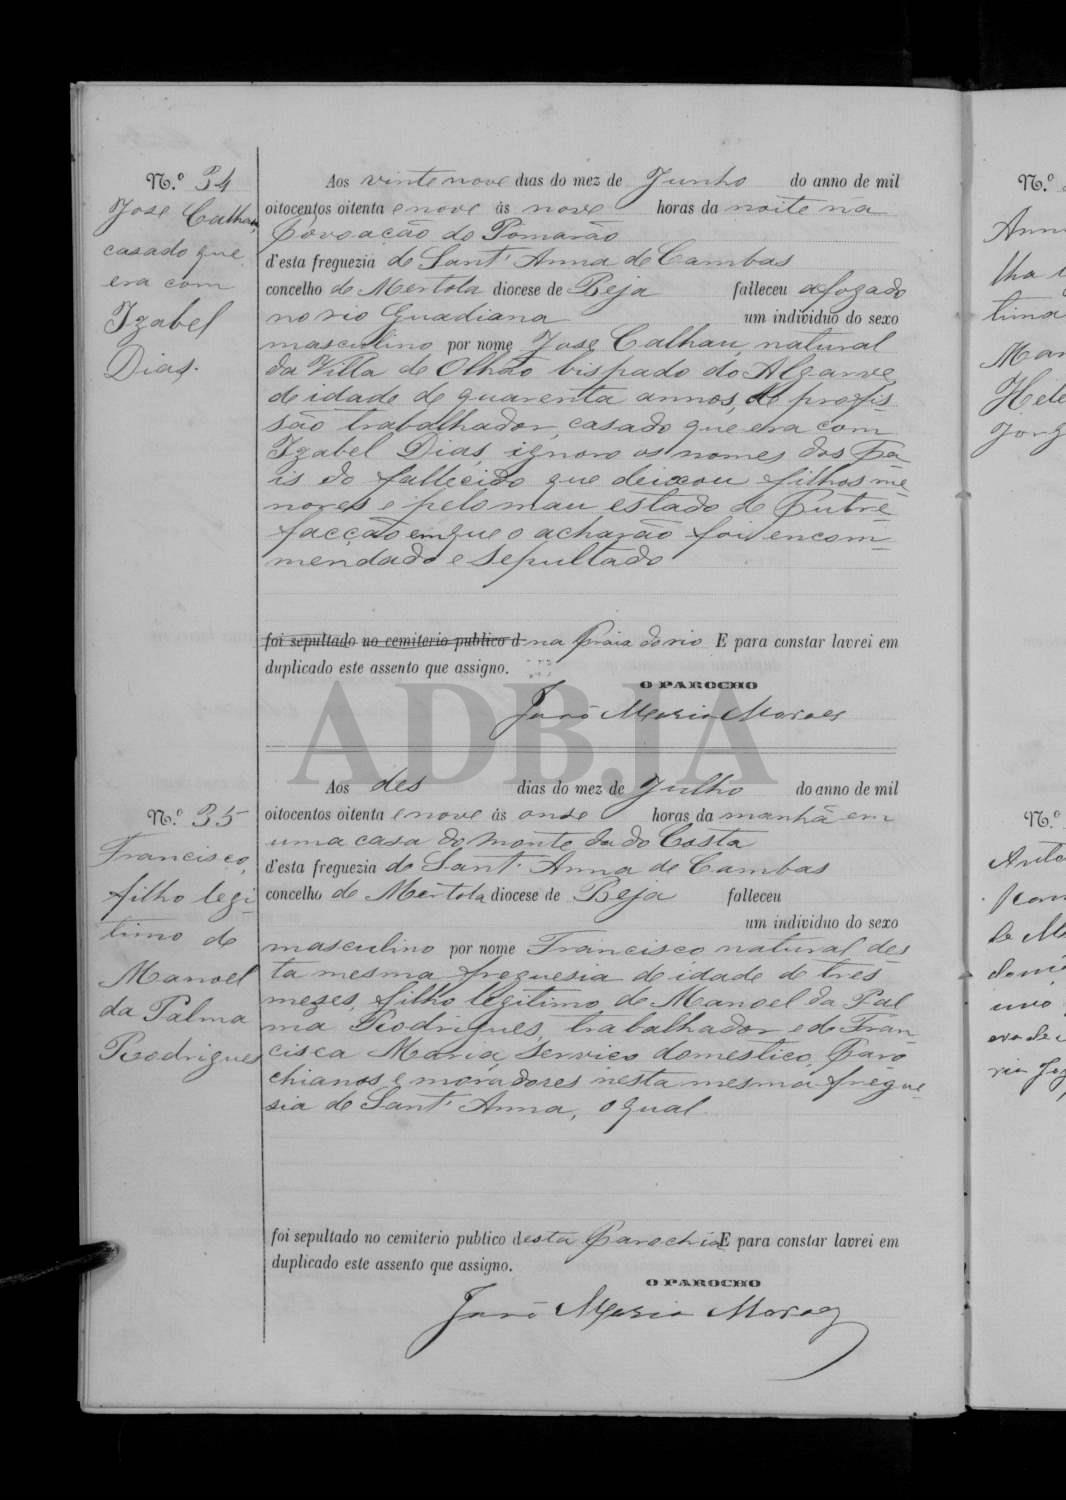 N.º 34
Jose Calhau,
casado que
era com
Izabel
Dias.
Aos vinte nove dias do mez de Junho do anno de mil
oitocentos oitenta e nove ás nove horas da noite na
povoação do Pomarão
d'esta freguezia de Sant' Anna de Cambas
concelho de Mertola diocese de Beja falleceu afogado
no rio Guadiana um individuo do sexo
masculino por nome Jose Calhau, natural
da Villa de Olhão bispado do Algarve
de idade de quarenta annos, de profis-
são trabalhador, casado que era com
Izabel Dias, ignoro os nomes dos Pa-
is do fallecido que deixou filhos me-
nores e pelo mau estado de Putre-
facção em que o acharão foi encom-
mendado e sepultado
foi sepultado no cemiterio publico d na praia do rio E para constar lavrei em
duplicado este assento que assigno.
O PAROCHO
Maria Moraes
ADBJA
N.º 35
Francisco,
filho legi-
timo de
Manoel
da Palma
Rodrigues
Aos des dias do mez de Julho do anno de mil
oitocentos oitenta e nove ás onse horas da manhã em
uma casa do monte da do Costa
d'esta freguezia de Sant' Anna de Cambas
concelho de Mertola diocese de Beja falleceu
um individuo do sexo
masculino por nome Francisco, natural des
ta mesma freguesia de idade de tres
mezes, filho legitimo de Manoel da Pal
ma Rodrigues, trabalhador e de Fran-
cisca Maria, serviço domestico, Paro
chianos e moradores nesta mesma fregue-
sia de Sant' Anna, o qual
foi sepultado no cemiterio publico desta Parochia E para constar lavrei em
duplicado este assento que assigno.
O PAROCHO
Maria Moraes
N.º
Ann
lha
tima
Mar
Hele
Jorg
N.º
Anto